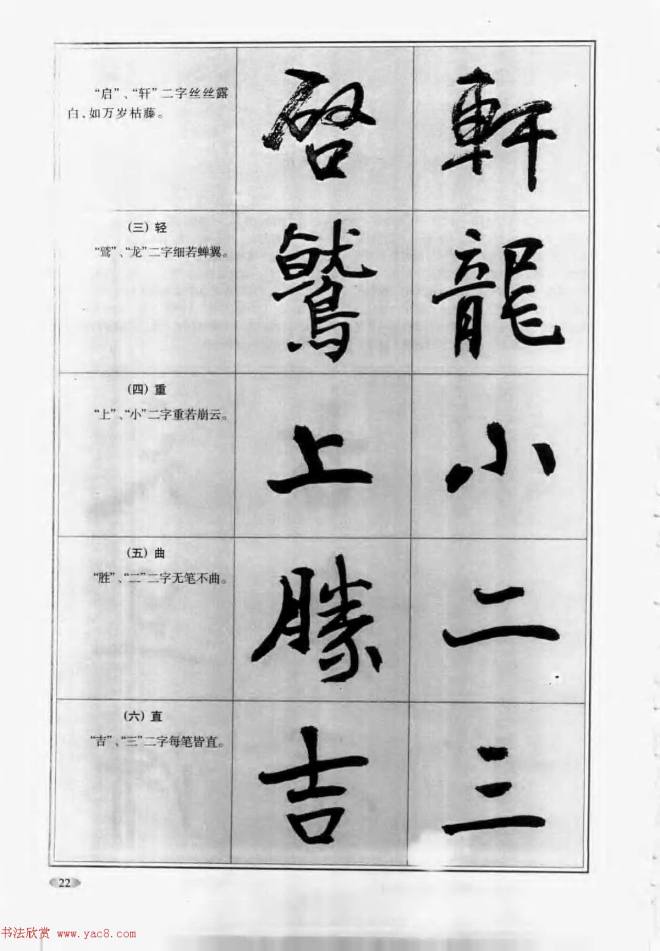 “启”、“轩”二字丝丝露
白，如万岁枯藤。
啓 軒
(三) 轻
“鹫”、“龙”二字细若蝉翼。
鷲 龍
(四) 重
“上”、“小”二字重若崩云。
上 小
(五) 曲
“胜”、“二”二字无笔不曲。
勝 二
(六) 直
“吉”、“三”二字每笔皆直。
吉 三
22
书法欣赏 www.yac8.com